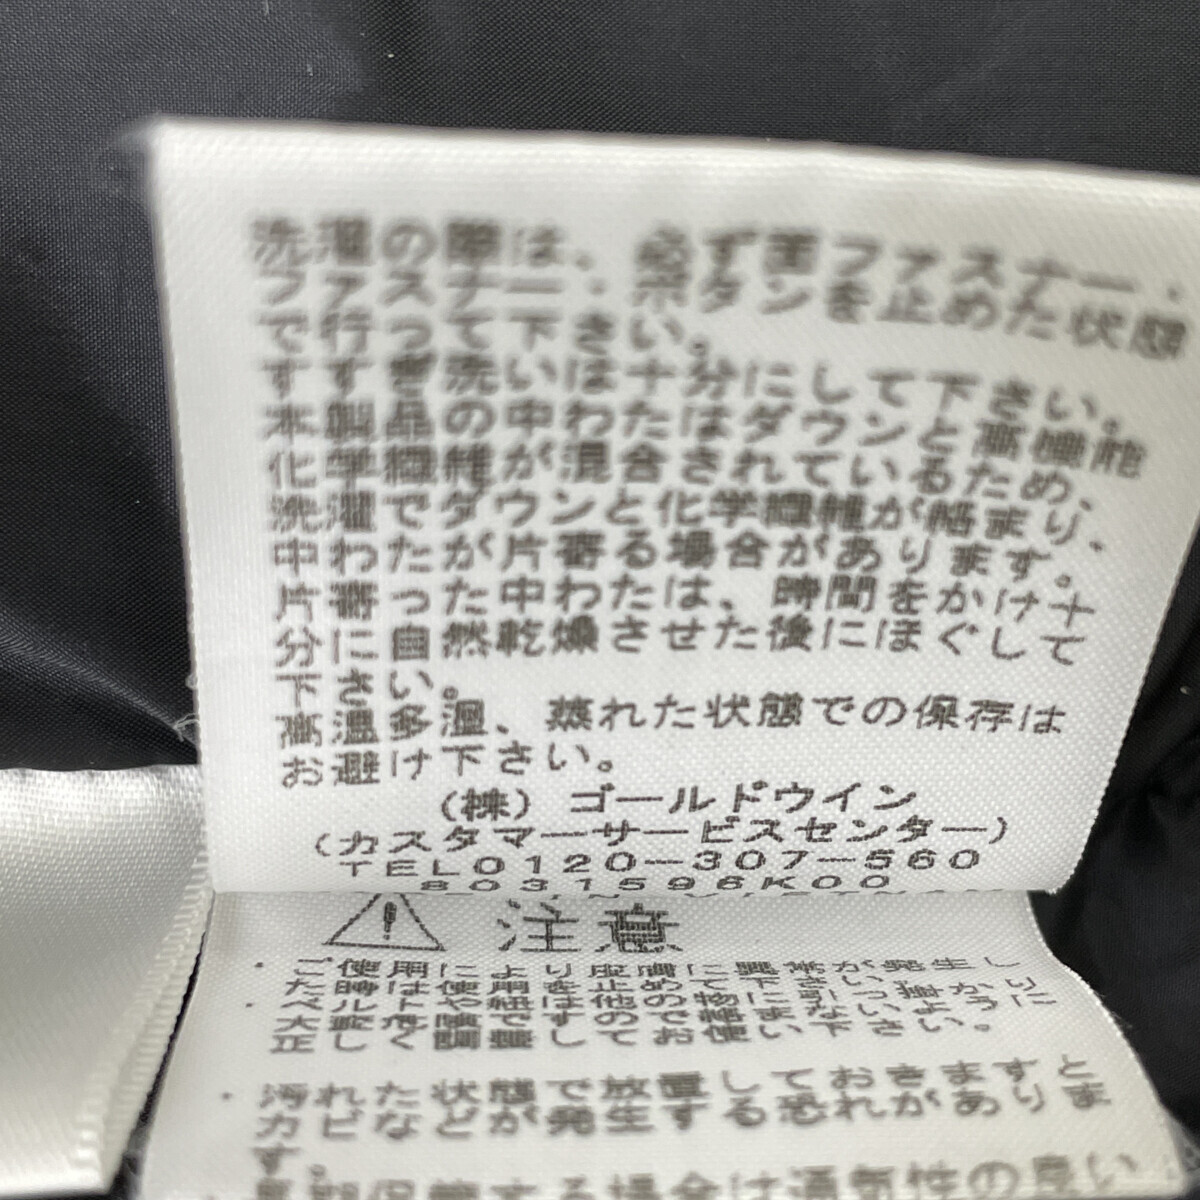 洗濯の際は、必ず面ファスナー・
ファスナー・ボタンを止めた状態
で行って下さい。
すすぎ洗いは十分にして下さい。
本製品の中わたはダウンと高機能
化学繊維が混合されているため、
洗濯でダウンと化学繊維が絡まり、
中わたが片寄る場合があります。
片寄った中わたは、時間をかけ十
分に自然乾燥させた後にほぐして
下さい。
高温多湿、蒸れた状態での保存は
お避け下さい。
(株) ゴールドウイン
(カスタマーサービスセンター)
TEL0120-307-560
8031596K00
注意
・ご使用により皮膚に異常が発生し
た時は使用を止めて下さい。
・ベルトや紐は他の物に引っ掛かり
大変危険ですので絶対にないように
正しく調整してお使い下さい。
・汚れた状態で放置しておきますと
カビなどが発生する恐れがありま
す。
長期保管する場合は通気性の良い